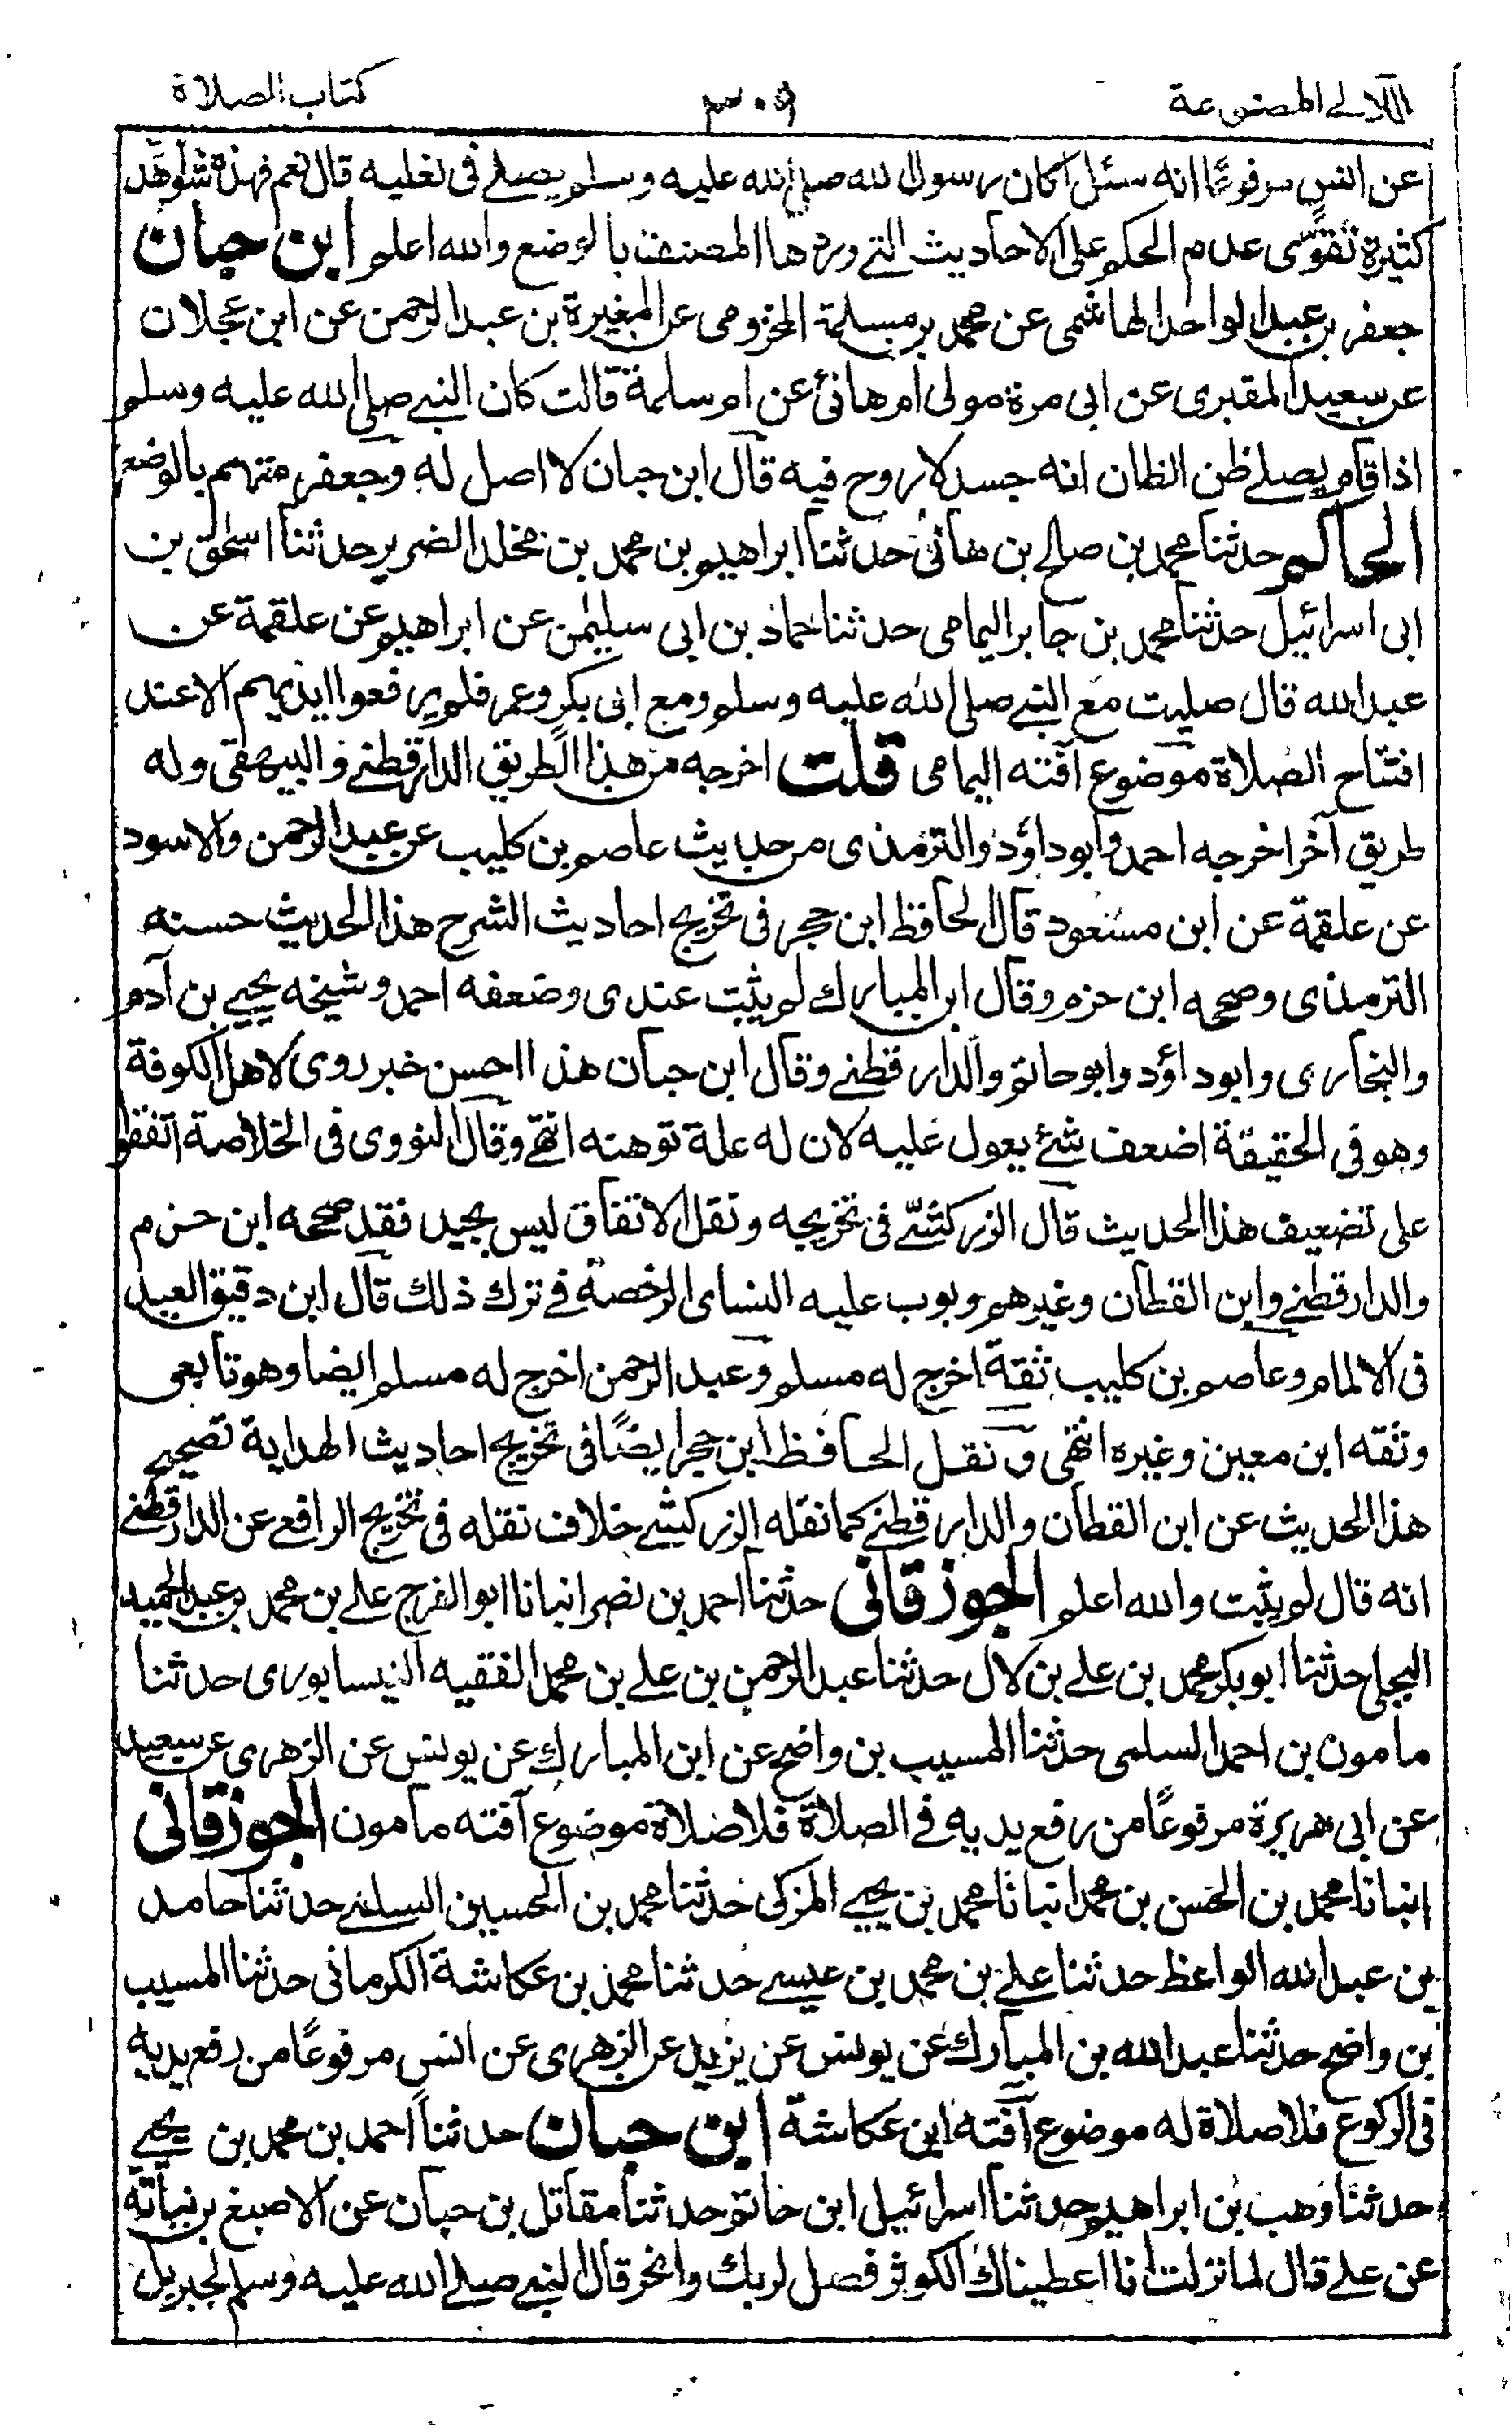 اللآلے المصنوعة
٣٠٩
كتاب الصلاة
عن انس مرفوعًا انه سئل اكان رسول الله صلى الله عليه وسلم يصلے فى نعليه قال نعم فهذه شواهد
كثيرة تقوّى عدم الحكم على الاحاديث التے وردها المصنف بالوضع والله اعلم ابن حبان
جعفر بن عبد الواحد الهاشمى عن محمد بن مسلمة المخزومى عن المغيرة بن عبد الرحمن عن ابن عجلان
عن سعيد المقبرى عن ابى مرة مولى ام هانئ عن ام سلمة قالت كان النبے صلى الله عليه وسلم
اذا قام يصلے ظن الظان انه جسد لا روح فيه قال ابن حبان لا اصل له وجعفر متهم بالوضع
الحاكم حدثنا محمد بن صالح بن هانئ حدثنا ابراهيم بن محمد بن مخلد الضرير حدثنا اسحق بن
ابى اسرائيل حدثنا محمد بن جابر اليمامى حدثنا حماد بن ابى سليمن عن ابراهيم عن علقمة عن
عبد الله قال صليت مع النبے صلى الله عليه وسلم ومع ابى بكر وعمر فلم يرفعوا ايديهم الا عند
افتتاح الصلاة موضوع آفته اليمامى قلت اخرجه من هذا الطريق الدارقطنے والبيهقى وله
طريق آخر اخرجه احمد وابو داؤد والترمذى من حديث عاصم بن كليب عن عبد الرحمن والاسود
عن علقمة عن ابن مسعود قال الحافظ ابن حجر فى تخريج احاديث الشرح هذا الحديث حسنه
الترمذى وصححه ابن حزم وقال ابن المبارك لم يثبت عندى وضعفه احمد وشيخه يحيے بن آدم
والبخارى وابو داؤد وابو حاتم والدارقطنے وقال ابن حبان هذا احسن خبر روى لاهل الكوفة
وهو فى الحقيقة اضعف شئ يعول عليه لان له علة توهنه انتهے وقال النووى فى الخلاصة اتفقوا
على تضعيف هذا الحديث قال الزركشے فى تخريجه ونقل الاتفاق ليس بجيد فقد صححه ابن حزم
والدارقطنے وابن القطان وغيرهم وبوب عليه النساى الرخصة فے ترك ذلك قال ابن دقيق العيد
فى الالمام وعاصم بن كليب ثقة اخرج له مسلم وعبد الرحمن اخرج له مسلم ايضا وهو تابعى
وثقه ابن معين وغيره انتهى ونقل الحافظ ابن حجر ايضًا فى تخريج احاديث الهداية تصحيح
هذا الحديث عن ابن القطان والدارقطنے كما نقله الزركشے خلاف نقله فى تخريج الرافعے عن الدارقطنے
انه قال لم يثبت والله اعلم الجوزقانى حدثنا احمد بن نصر انبانا ابو الفرج علے بن محمد بن عبد الحميد
البجلى حدثنا ابو بكر محمد بن علے بن لال حدثنا عبد الرحمن بن علے بن محمد الفقيه النيسابورى حدثنا
مامون بن احمد السلمى حدثنا المسيب بن واضح عن ابن المبارك عن يونس عن الزهرى عن سعيد
عن ابى هريرة مرفوعًا من رفع يديه فے الصلاة فلا صلاة موضوع آفته مامون الجوزقانى
انبانا محمد بن الحسن بن محمد انبانا محمد بن يحيے المزكى حدثنا محمد بن الحسين السلمے حدثنا حامد
بن عبد الله الواعظ حدثنا علے بن محمد بن عيسے حدثنا محمد بن عكاشة الكرمانى حدثنا المسيب
بن واضح حدثنا عبد الله بن المبارك عن يونس عن يزيد عن الزهرى عن انس مرفوعًا من رفع يديه
فى الركوع فلا صلاة له موضوع آفته ابن عكاشة ابن حبان حدثنا احمد بن محمد بن يحيے
حدثنا وهب بن ابراهيم حدثنا اسرائيل ابن حاتم حدثنا مقاتل بن حيان عن الاصبغ بن نباتة
عن علے قال لما نزلت انا اعطيناك الكوثر فصل لربك وانحر قال النبے صلے الله عليه وسلم لجبريل